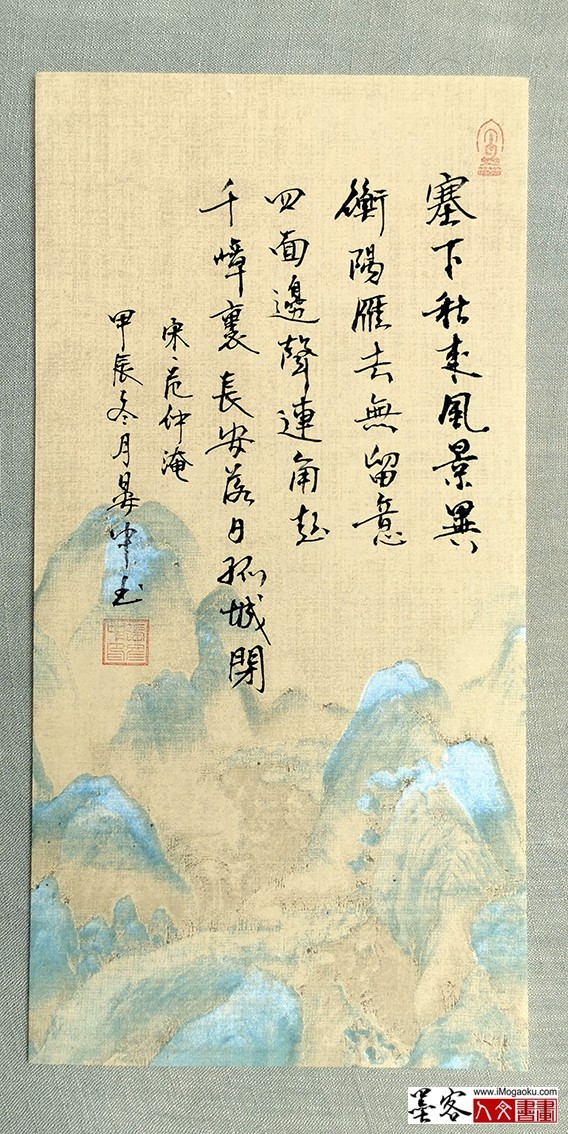 塞下秋來風景異
衡陽雁去無留意
四面邊聲連角起
千嶂裏長安落日孤城閉
宋、范仲淹
甲辰冬月
墨客
www.iMogaoku.com
人文書畫